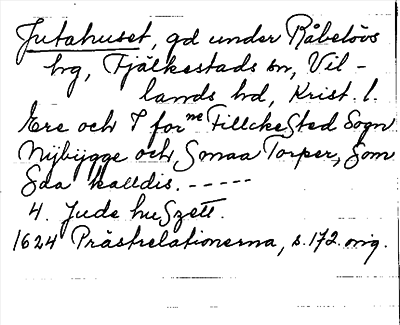 Jutahuset, gd under Råbelövs
hg, Fjälkestads sn, Vil-
lands hd, Krist. l.
Ere och I for^ne Fillckested Sogn
Nijbijgge och Smaa Torper, Som
Saa kalldis. -----
4. Jude huSzett.
1624 Prästrelationerna, s. 172. orig.